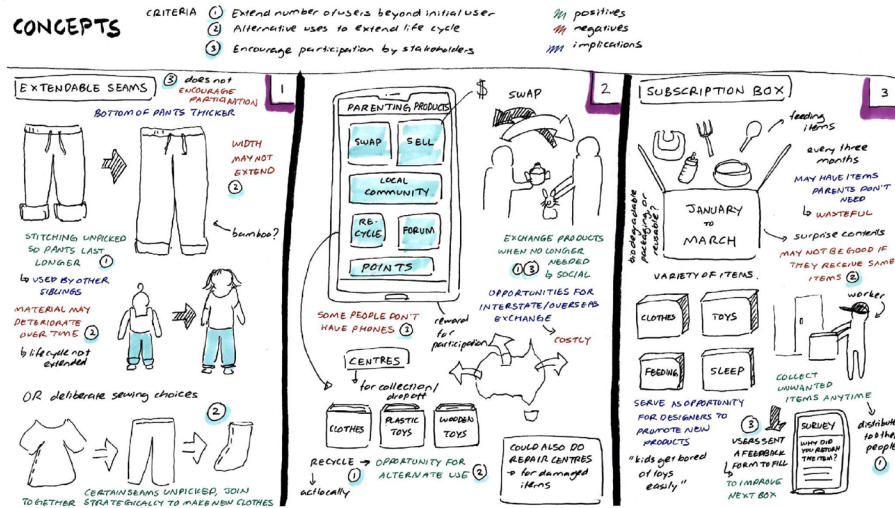 CONCEPTS
CRITERIA ① Extend number of users beyond initial user
② Alternative uses to extend life cycle
③ Encourage participation by stakeholders
positives
negatives
implications
EXTENDABLE SEAMS
③ does not
ENCOURAGE
PARTICIPATION
1
BOTTOM OF PANTS THICKER
WIDTH
MAY NOT
EXTEND
②
bamboo?
STITCHING UNPICKED
SO PANTS LAST
LONGER ①
↳ USED BY OTHER
SIBLINGS
MATERIAL MAY
DETERIORATE
OVER TIME ②
↳ lifecycle not
extended
OR deliberate sewing choices
②
TOGETHER
CERTAIN SEAMS UNPICKED, JOIN
STRATEGICALLY TO MAKE NEW CLOTHES
2
PARENTING PRODUCTS
$
SWAP
SELL
LOCAL
COMMUNITY
RE-
CYCLE
FORUM
POINTS
SWAP
EXCHANGE PRODUCTS
WHEN NO LONGER
NEEDED
①③ ↳ SOCIAL
OPPORTUNITIES FOR
INTERSTATE/OVERSEAS
EXCHANGE
COSTLY
SOME PEOPLE DON'T
HAVE PHONES ③
reward
for
participation
CENTRES
for collection/
dropoff
CLOTHES
PLASTIC
TOYS
WOODEN
TOYS
RECYCLE → OPPORTUNITY FOR
① ALTERNATE USE ②
act locally
COULD ALSO DO
REPAIR CENTRES
→ for damaged
items
SUBSCRIPTION BOX
3
feeding
items
every three
months
MAY HAVE ITEMS
PARENTS DON'T
NEED
↳ WASTEFUL
surprise contents
MAY NOT BE GOOD IF
THEY RECEIVE SAME
ITEMS ②
biodegradable
packaging, or
reusable?
JANUARY
TO
MARCH
VARIETY OF ITEMS.
CLOTHES
TOYS
FEEDING
SLEEP
worker
COLLECT
UNWANTED
ITEMS ANYTIME
distribute
to other
people
①
SERVE AS OPPORTUNITY
FOR DESIGNERS TO
PROMOTE NEW
PRODUCTS
"kids get bored
of toys
easily"
③
USERS SENT
A FEEDBACK
FORM TO FILL
↳ TO IMPROVE
NEXT BOX
SURVEY
WHY DID
YOU RETURN
THE ITEM?